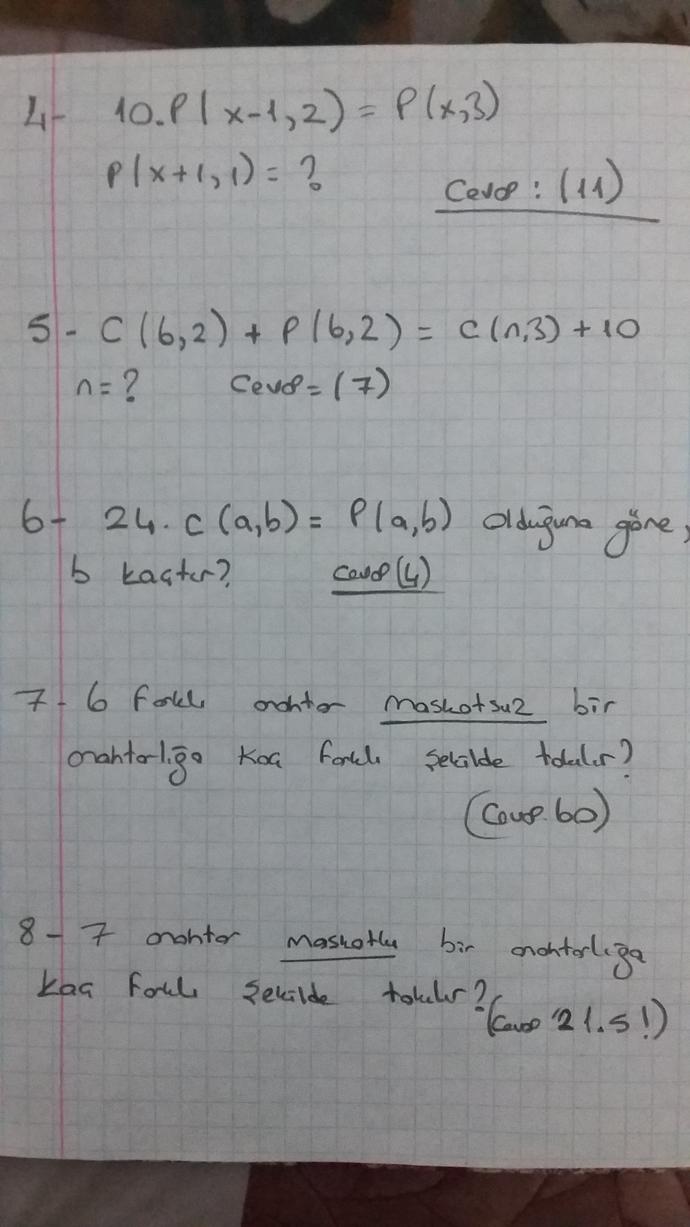 4- 10.P(x-1,2) = P(x,3)
P(x+1,1) = ?
Cevap : (11)
5- C(6,2) + P(6,2) = C(n,3) + 10
n = ? Cevap = (7)
6- 24. C(a,b) = P(a,b) olduğuna göre,
b kaçtır? Cevap (4)
7- 6 farklı anahtar maskotsuz bir
anahtarlığa kaç farklı şekilde takılır?
(Cevap 60)
8- 7 anahtar maskotlu bir anahtarlığa
kaç farklı şekilde takılır?
(Cevap 21.5!)